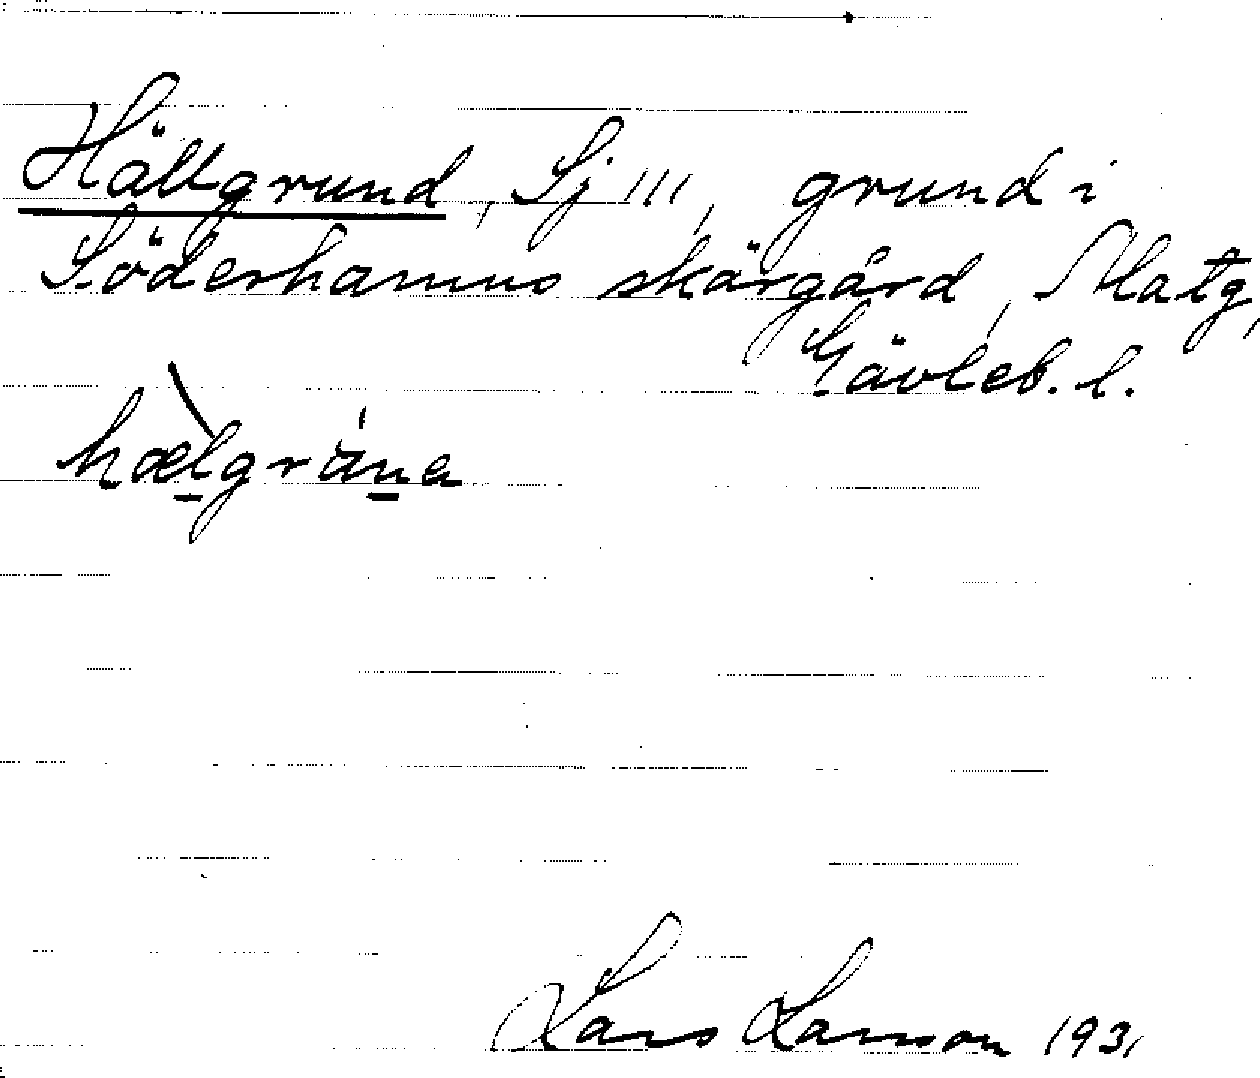 Hällgrund, Sj 111, grund i
Söderhamns skärgård,
Gävleb. l.
hælgräna
Lars Larsson 1931